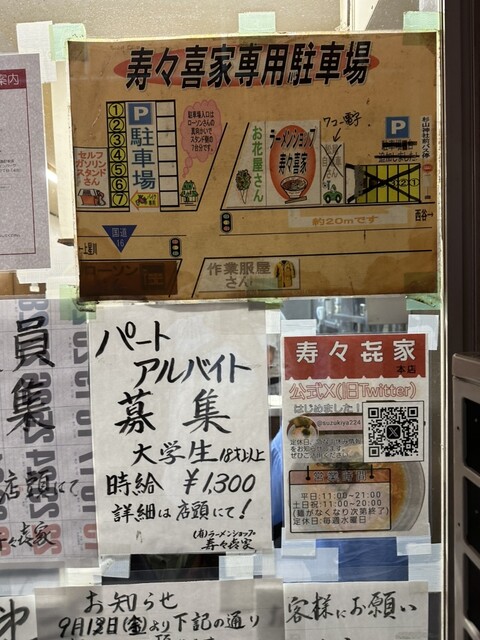 寿々喜家専用駐車場
案内
①
②
③
④
⑤
⑥
⑦
P
駐車場
駐車場入口は
ローソンさんの
真向かいで
スタンド側の
7台分です。
セルフ
ガソリン
スタンド
さん
お花屋さん
ラーメンショップ
寿々喜家
P
杉山神社前バス停
西谷→
約20mです
国道
16
←上星川
ローソン
作業服屋
さん
員
集
店頭にて
寿々㐂家
パート
アルバイト
募集
大学生 18才以上
時給 ¥1,300
詳細は店頭にて!
(有)ラーメンショップ
寿々㐂家
寿々㐂家
本店
公式X(旧Twitter)
はじめました!
@suzukiya224
営業時間
平日:11:00~21:00
土日祝:11:00~20:00
(麺がなくなり次第終了)
定休日:毎週水曜日
お知らせ
9月12日(金)より下記の通り
客様にお願い